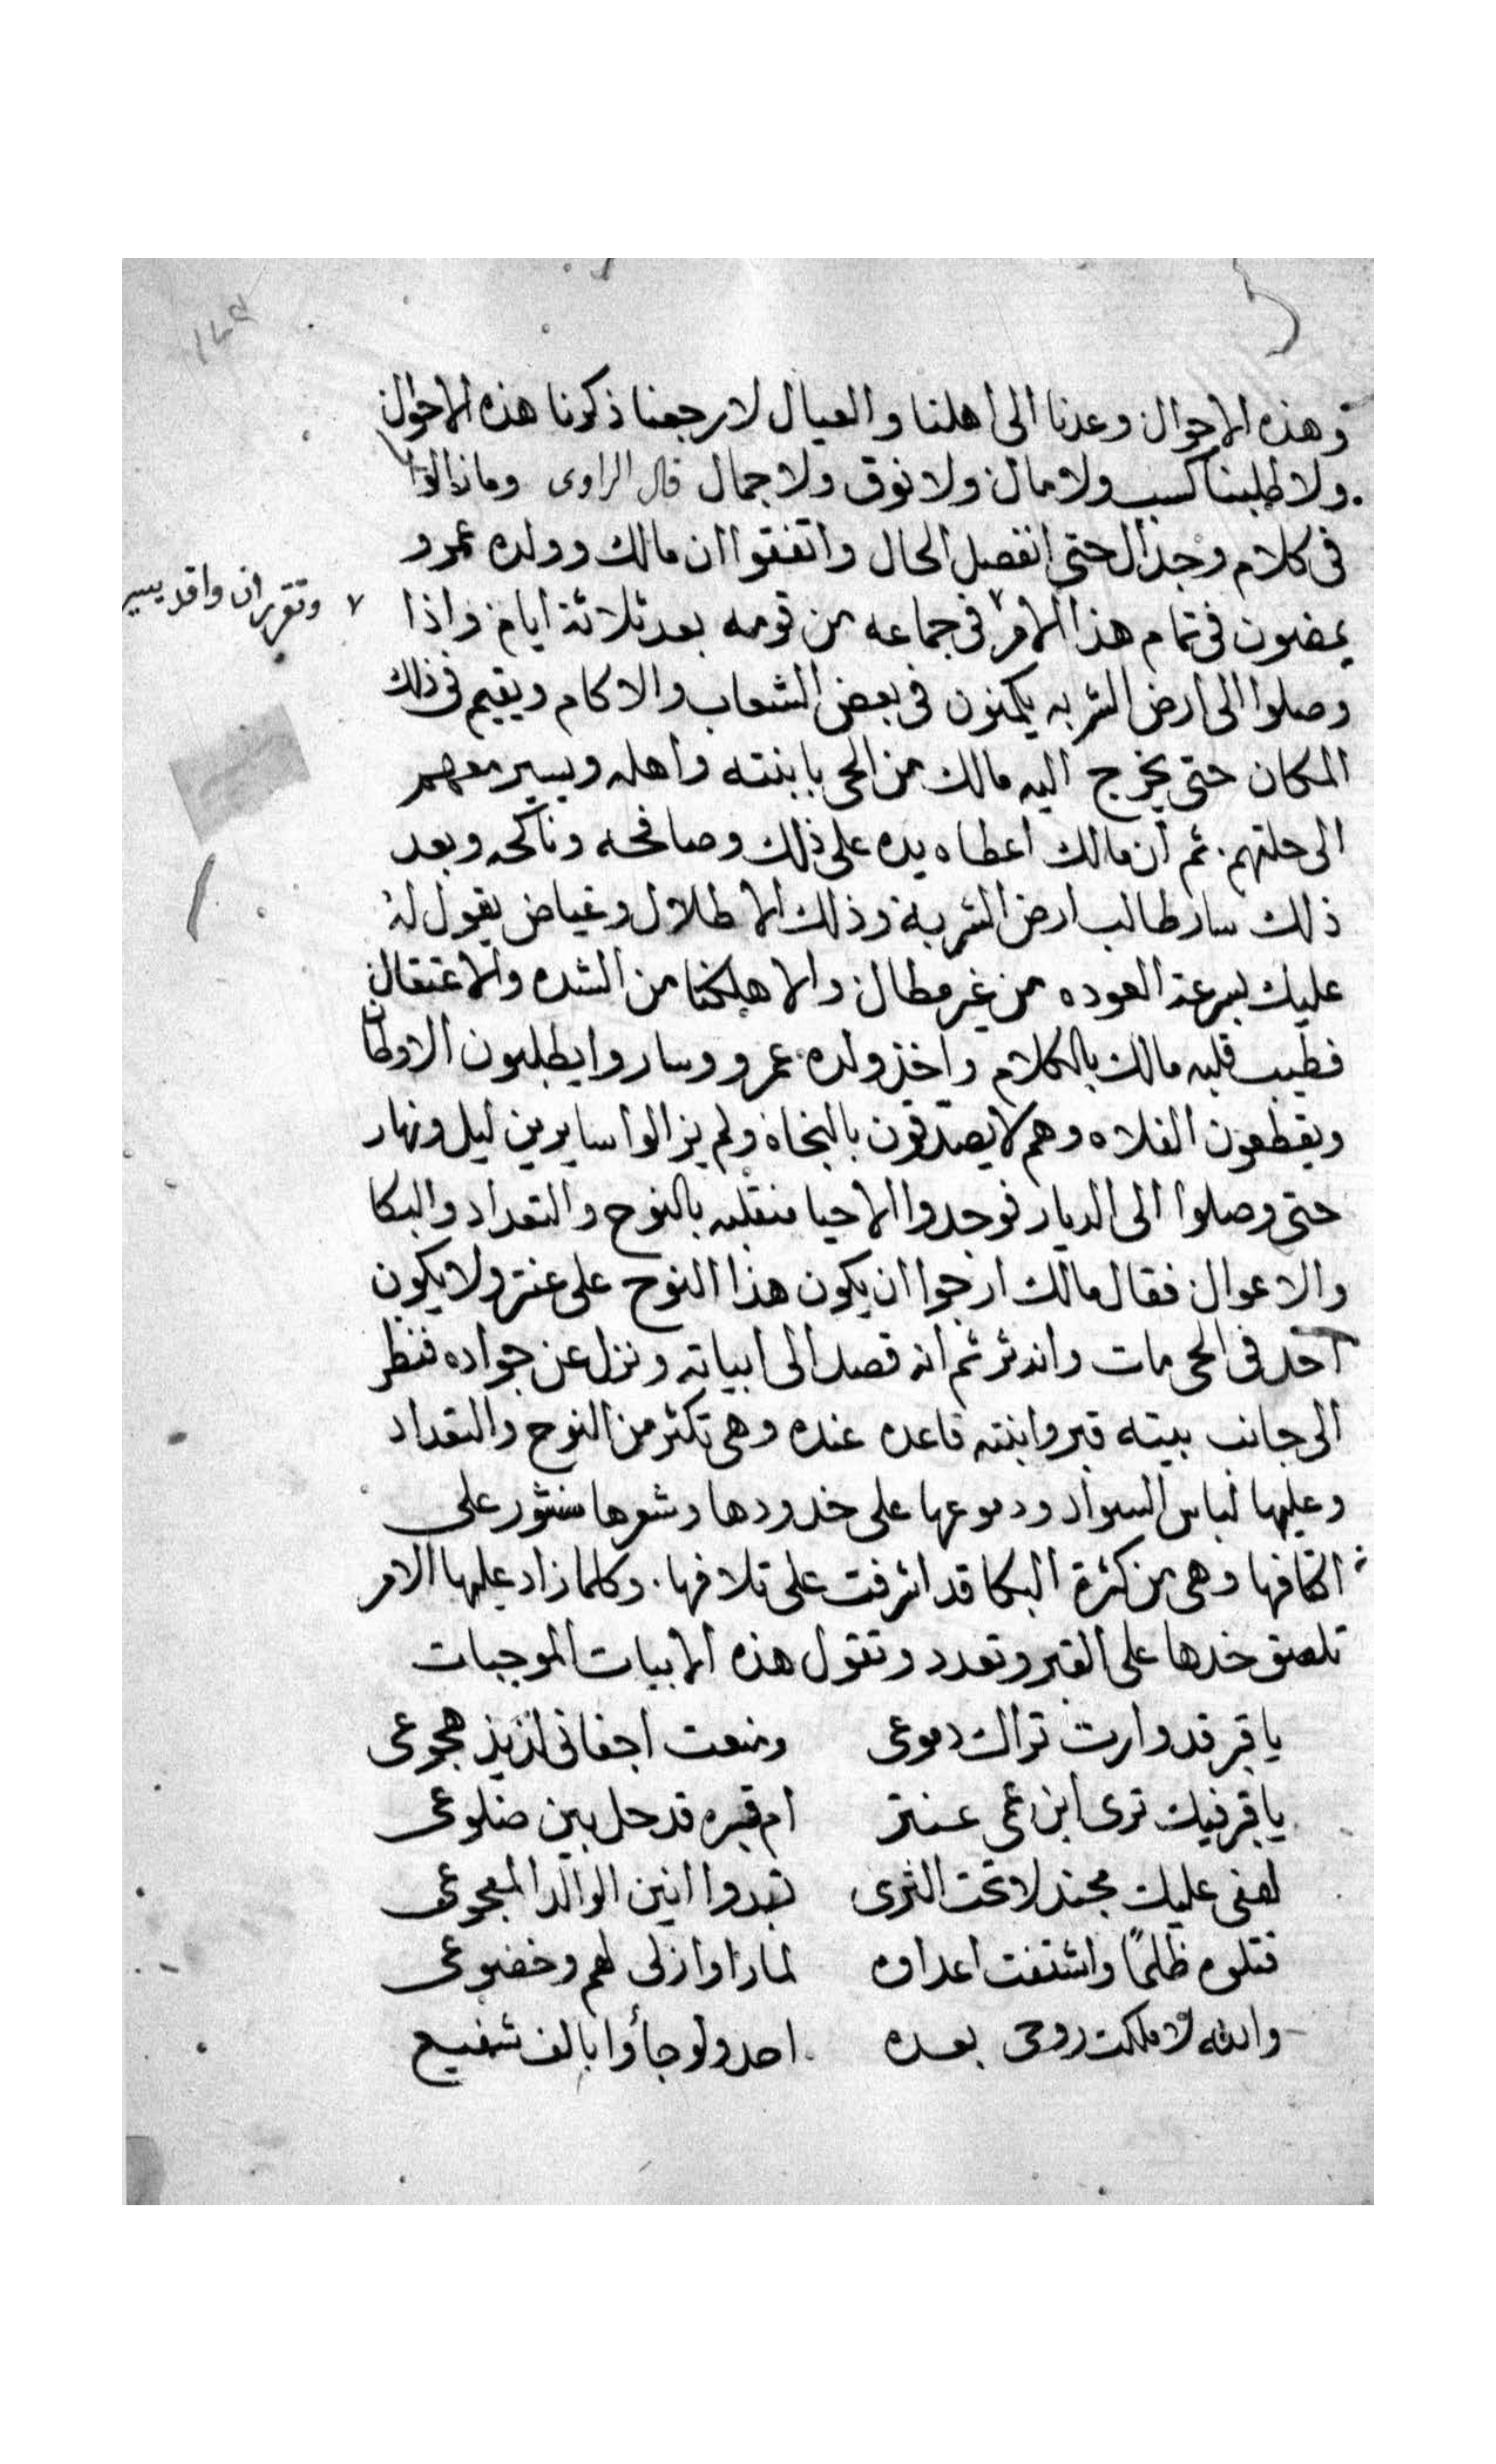 وهذه الاحوال وعدنا الى اهلنا والعيال لا رجعنا ذكرنا هذه الاحوال
ولا طلبنا كسب ولا مال ولا نوق ولا جمال قال الراوى وما زالوا
فى كلام وجدال حتى انفصل الحال واتفقوا ان مالك وولده عمرو
يمضون فى تمام هذا الامر ٧ فى جماعه من قومه بعد ثلاثة ايام واذا
٧ وتقرر ان واقد يسير
وصلوا الى ارض الشربه يكمنون فى بعض الشعاب والاكام ويقيم فى ذلك
المكان حتى يخرج اليه مالك من الحى بابنته واهله ويسير معهم
الى حلتهم. ثم ان مالك اعطاه يده على ذلك وصافحه وناكحه وبعد
ذلك سار طالب ارض الشربة وذلك الاطلال وغياض يقول له
عليك بسرعة العوده من غير مطال والا هلكنا من الشده والاعتقال
فطيب قلبه مالك بالكلام واخذ ولده عمرو وساروا يطلبون الاوطان
ويقطعون الفلاه وهم لا يصدقون بالنجاة ولم يزالوا سايرين ليل ونهار
حتى وصلوا الى الديار فوجدوا الاحيا منقلبه بالنوح والتعداد والبكا
والاعوال فقال مالك ارجوا ان يكون هذا النوح على عنتر ولا يكون
احد فى الحى مات واندثر ثم انه قصد الى ابياته ونزل عن جواده فنظر
الى جانب بيته قبر وابنته قاعده عنده وهى تكثر من النوح والتعداد
وعليها لباس السواد ودموعها على خدودها وشعرها منثور على
اكتافها وهى من كثرة البكا قد اشرفت على تلافها. وكلما زاد عليها الامر
تلصق خدها على القبر وتعدد وتقول هذه الابيات الموجبات
يا قبر قد وارت تراك دموعى ومنعت اجفانى لذيذ هجوعى
يا قبر فيك ترى ابن عمى عنتر ام قبره قد حل بين ضلوعى
لهفى عليك مجندلا تحت الثرى تبدوا انين الوالد المفجوعى
قتلوه ظلمًا واشتفت اعداوه لما راوا ذلى لهم وخضوعى
والله لا ملكت روحى بعده احد ولو جأوا بالف شفيع